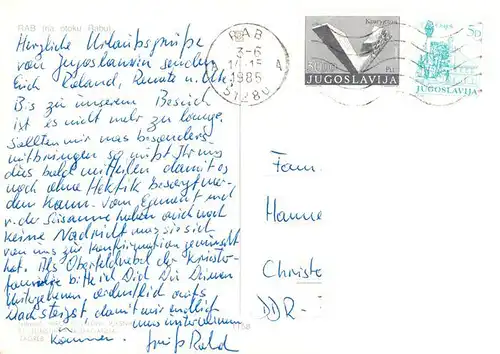 RAB (na otoku Rabu)
Herzliche Urlaubsgrüße
von Jugoslawien senden
Euch Roland, Renate u. Ute
Bis zu unserem Besuch
ist es nicht mehr zu lange.
Sollten wir was besonders
mitbringen so müßt Ihr uns
dies bald mitteilen damit es
noch ohne Hektik besorgt wer-
den kann. Von
v. der Susanne haben wir noch
keine Nachricht was sie sich
von uns zur Konfirmation gewünscht
hat. Als Oberfeldwebel der
familie bitte ich Dich Dir Deinen
Untergebenen,
damit wir endlich
was unternehmen
können. Gruß Rald
RAB
3-6
14-15
1986
51280
JUGOSLAVIJA
50
JUGOSLAVIJA
Fam.
Hanne
Christo
DDR-